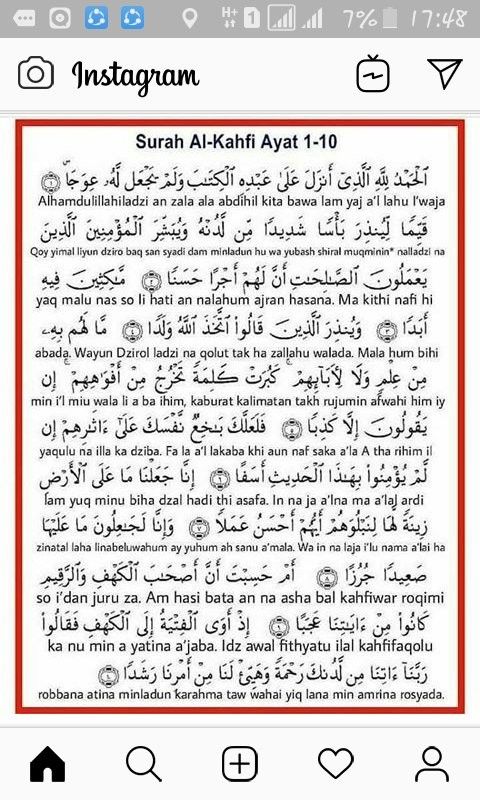 H+ 1 7% 17:48
Instagram
Surah Al-Kahfi Ayat 1-10
الْحَمْدُ لِلَّهِ الَّذِي أَنْزَلَ عَلَىٰ عَبْدِهِ الْكِتَابَ وَلَمْ يَجْعَلْ لَهُ عِوَجًا ۜ ١
Alhamdulillahiladzi an zala ala abdihil kita bawa lam yaj a'l lahu I'waja
قَيِّمًا لِيُنْذِرَ بَأْسًا شَدِيدًا مِنْ لَدُنْهُ وَيُبَشِّرَ الْمُؤْمِنِينَ الَّذِينَ
Qoy yimal liyun dziro baq san syadi dam minladun hu wa yubash shiral muqminin* nalladzi na
يَعْمَلُونَ الصَّالِحَاتِ أَنَّ لَهُمْ أَجْرًا حَسَنًا ٢ مَاكِثِينَ فِيهِ
yaq malu nas so li hati an nalahum ajran hasana. Ma kithi nafi hi
أَبَدًا ٣ وَيُنْذِرَ الَّذِينَ قَالُوا اتَّخَذَ اللَّهُ وَلَدًا ٤ مَا لَهُمْ بِهِ
abada. Wayun Dzirol ladzi na qolut tak ha zallahu walada. Mala hum bihi
مِنْ عِلْمٍ وَلَا لِآبَائِهِمْ ۚ كَبُرَتْ كَلِمَةً تَخْرُجُ مِنْ أَفْوَاهِهِمْ ۚ إِنْ
min i'l miu wala li a ba ihim, kaburat kalimatan takh rujumin afwahi him iy
يَقُولُونَ إِلَّا كَذِبًا ٥ فَلَعَلَّكَ بَاخِعٌ نَفْسَكَ عَلَىٰ آثَارِهِمْ إِنْ
yaqulu na illa ka dziba. Fa la a'l lakaba khi aun naf saka a'la A tha rihim il
لَمْ يُؤْمِنُوا بِهَٰذَا الْحَدِيثِ أَسَفًا ٦ إِنَّا جَعَلْنَا مَا عَلَى الْأَرْضِ
lam yuq minu biha dzal hadi thi asafa. In na ja a'lna ma a'lal ardi
زِينَةً لَهَا لِنَبْلُوَهُمْ أَيُّهُمْ أَحْسَنُ عَمَلًا ٧ وَإِنَّا لَجَاعِلُونَ مَا عَلَيْهَا
zinatal laha linabeluwahum ay yuhum ah sanu a'mala. Wa in na laja i'lu nama a'lai ha
صَعِيدًا جُرُزًا ٨ أَمْ حَسِبْتَ أَنَّ أَصْحَابَ الْكَهْفِ وَالرَّقِيمِ
so i'dan juru za. Am hasi bata an na asha bal kahfiwar roqimi
كَانُوا مِنْ آيَاتِنَا عَجَبًا ٩ إِذْ أَوَى الْفِتْيَةُ إِلَى الْكَهْفِ فَقَالُوا
ka nu min a yatina a'jaba. Idz awal fithyatu ilal kahfifaqolu
رَبَّنَا آتِنَا مِنْ لَدُنْكَ رَحْمَةً وَهَيِّئْ لَنَا مِنْ أَمْرِنَا رَشَدًا ١٠
robbana atina minladun karahma taw wahai yiq lana min amrina rosyada.